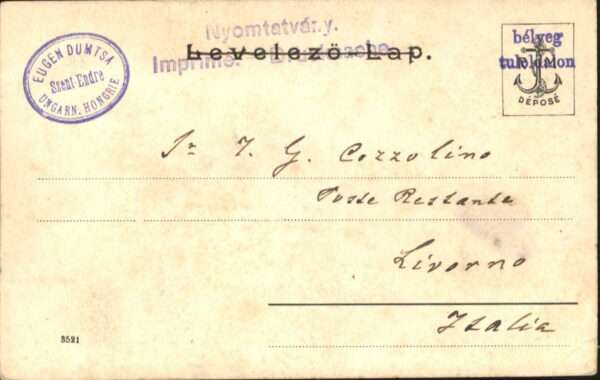 Nyomtatvány.
Imprimé. Drucksache.
Levelező-Lap.
EUGEN DUMTSA
Szent-Endre
UNGARN. HONGRIE
bélyeg
tuloldalon
DÉPOSÉ
Sr I. G. Cozzolino
Poste Restante
Livorno
Italia
3521